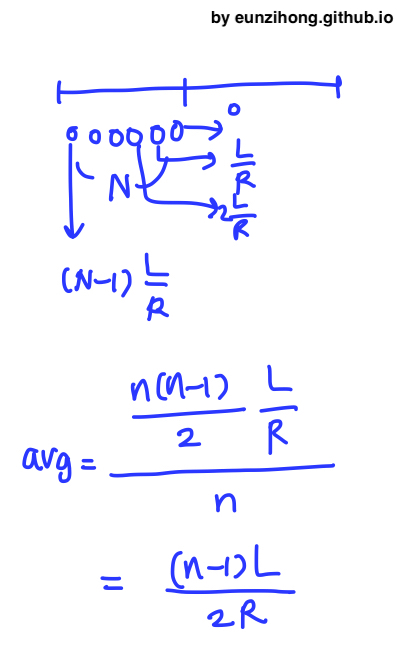 by eunzihong.github.io
0
L/R
N
2 L/R
(N-1) L/R
avg = (n(n-1)/2 L/R) / n
= (n-1)L / 2R